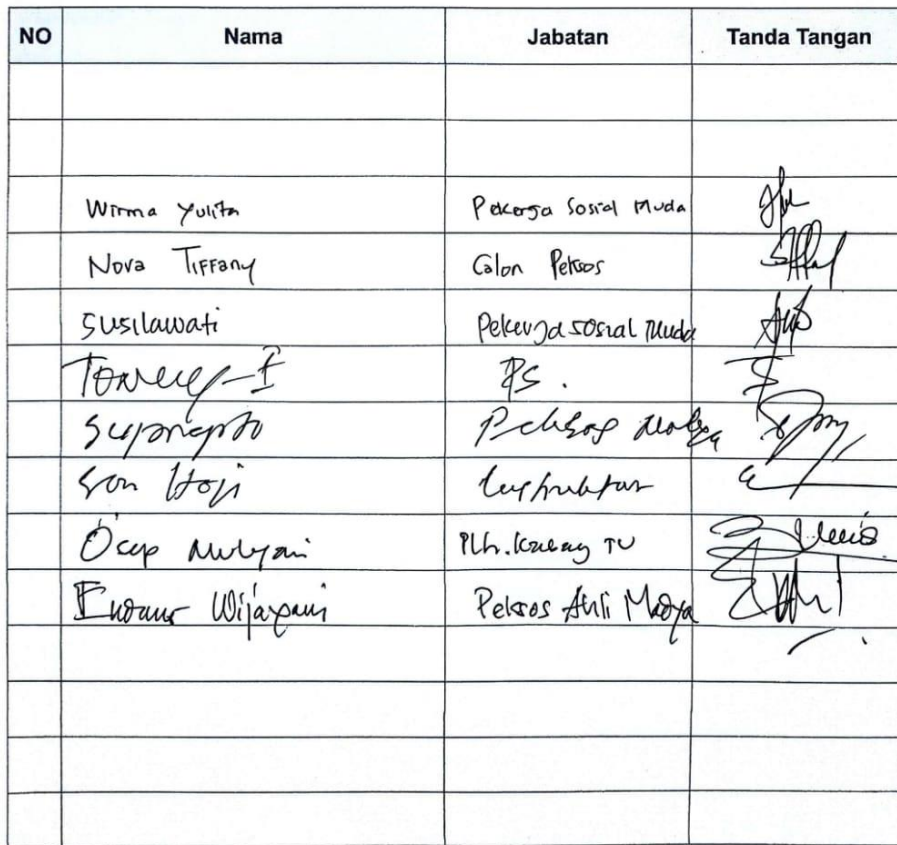 NO Nama Jabatan Tanda Tangan
Wirma Yulita Pekerja Sosial Muda
Nova Tiffany Calon Peksos
Susilawati Pekerja sosial Muda
PS.
Suprapto Peksos
Son Haji Instruktur
Ocep Mulyani Plh. Kabag TU
Wijayani Peksos Ahli Madya